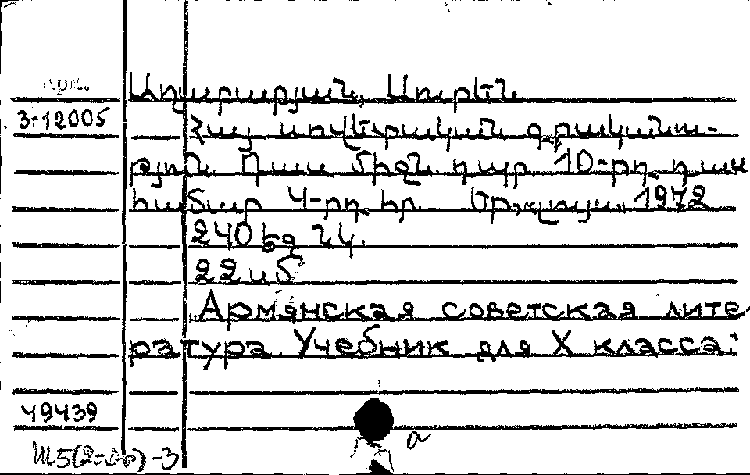 Աղաբաբյան, Սուրեն
3-12005
Հայ սովետական գրականու-
թյուն. Դաս. միջն. դպր. 10-րդ դաս
համար. 4-րդ հր. Երևան, 1972
240 էջ նկ.
22 սմ
Армянская советская лите
ратура. Учебник для X класса.
49439
а